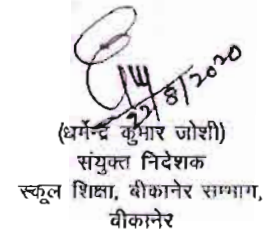 22/8/2020
(धर्मेन्द्र कुमार जोशी)
संयुक्त निदेशक
स्कूल शिक्षा, बीकानेर सम्भाग,
बीकानेर